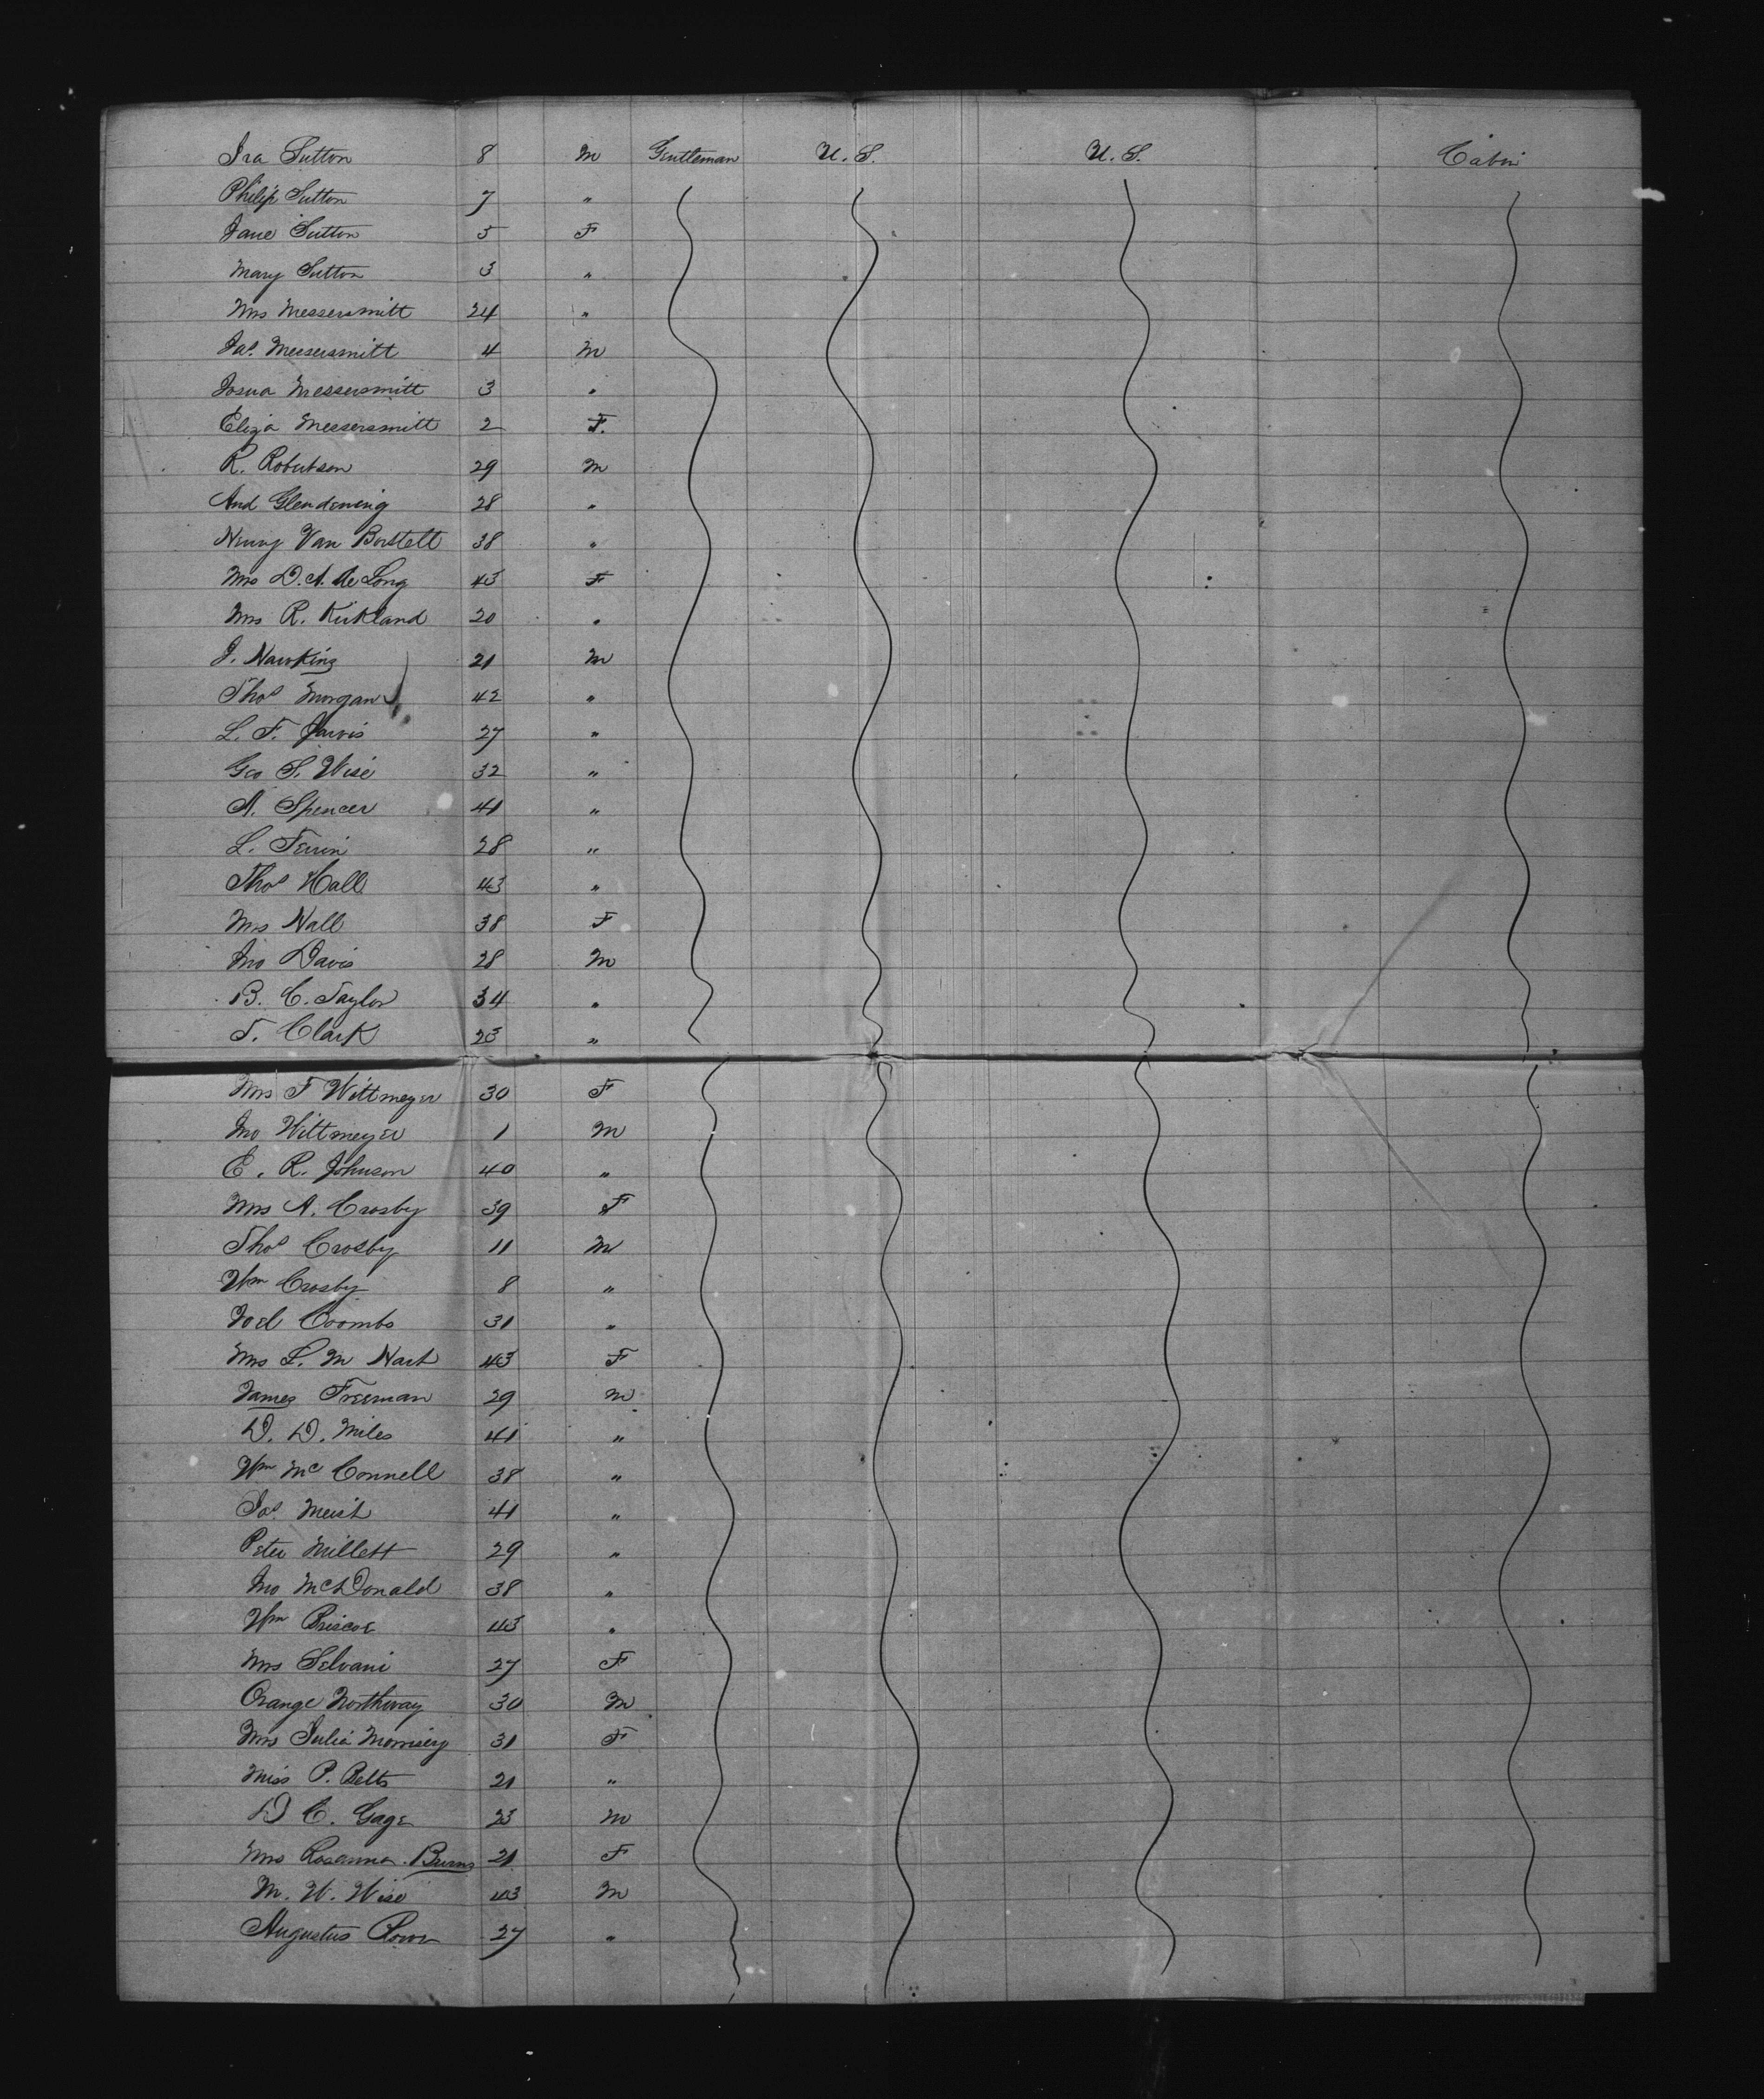 Ira Sutton 8 M Gentleman U. S. U. S. Cabin
Philip Sutton 7 "
Jane Sutton 5 F
Mary Sutton 3 "
Mrs Messersmitt 24 "
Jas. Messersmitt 4 M
Josua Messersmitt 3 "
Eliza Messersmitt 2 F.
R. Robertson 29 M
And Glendening 28 "
Henry Van Borstell 38 "
Mrs D. A. De Long 43 F
Mrs R. Kirkland 20 "
J. Hawking 21 M
Thos Morgan 42 "
L. F. Jarvis 27 "
Geo S. Wise 32 "
A. Spencer 41 "
L. Ferrin 28 "
Thos Hall 43 "
Mrs Hall 38 F
Jno Davis 28 M
B. C. Taylor 34 "
T. Clark 23 "
Mrs F Wittmeyer 30 F
Jno Wittmeyer 1 M
E. R. Johnson 40 "
Mrs A. Crosby 39 F
Thos Crosby 11 M
Wm Crosby 8 "
Joel Coombs 31 "
Mrs L. M Hart 43 F
James Freeman 29 M
D. D. Miles 41 "
Wm McConnell 38 "
Jas. 41 "
Peter Millett 29 "
Jno McDonald 38 "
Wm Briscoe 43 "
Mrs Selvani 27 F
Orange Northway 30 M
Mrs Julia Morrisey 31 F
Miss P. Betts 21 "
D C. Gage 23 M
Mrs Rosanna Burns 21 F
M. W. Wise 43 M
Augustus 27 "